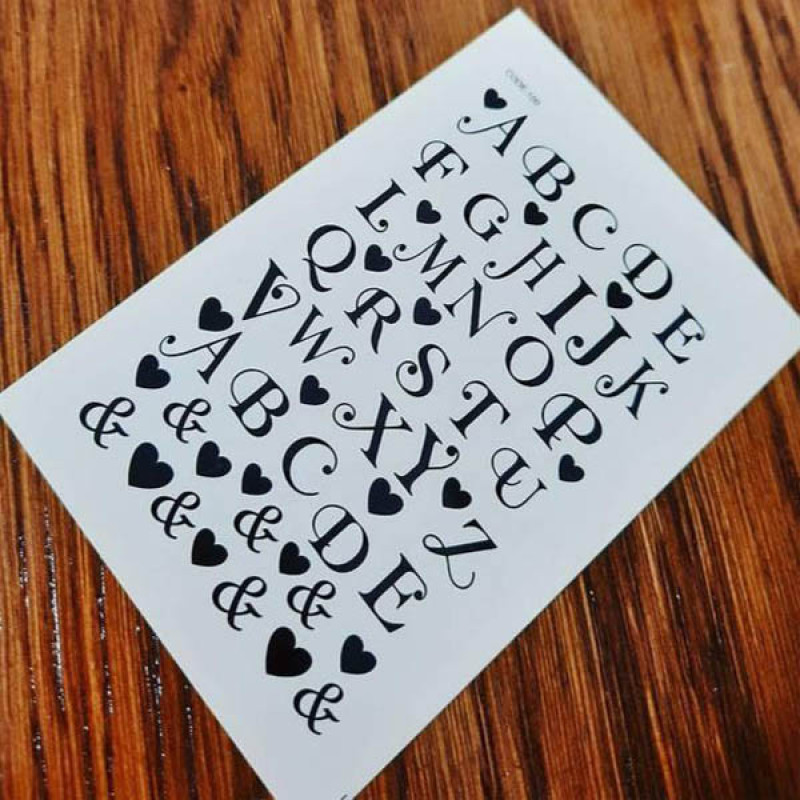 CODE-100
♥ A B C D E
F G ♥ H I J ♥ K
L ♥ M N O P ♥
Q ♥ R ♥ S T U
V W ♥ X Y ♥ Z
♥ A B C D E ♥
♥ & ♥ ♥ & ♥ & ♥
& ♥ & ♥ & ♥ &